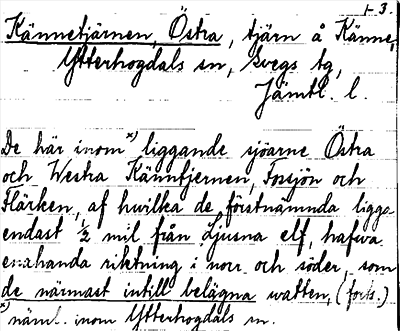 1-3.
Kännetjärnen, Östra, tjärn å Känne,
Ytterhogdals sn, Svegs tg,
Jämtl. l.
De här inom x) liggande sjöarne Östra
och Westra Kännfjernen, Fossjön och
Flärken, af hwilka de förstnämnda ligga
endast ½ mil från Ljusna elf, hafwa
enahanda riktning i norr och söder, som
de närmast intill belägna watten, (forts.)
x) näml. inom Ytterhogdals sn.